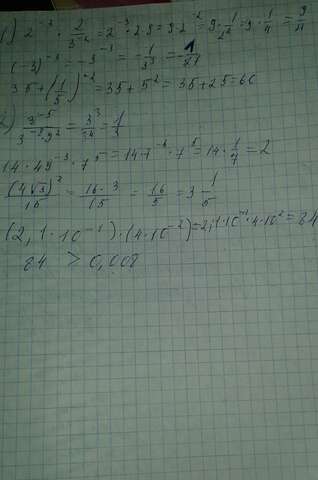 1) 2^{-3} · \frac{2}{3^{-2}} = 2^{-3} · 2 · 9 = 9 · 2^{-2} = 9 · \frac{1}{2^2} = 9 · \frac{1}{4} = \frac{9}{4}
(-3)^{-3} = -3^{-3} = -\frac{1}{3^3} = -\frac{1}{27}
35 + (\frac{1}{5})^{-2} = 35 + 5^2 = 35 + 25 = 60
= \frac{1}{3}
14 · 49^{-3} · 7^5 = 14 · 7^{-6} · 7^5 = 14 · \frac{1}{7} = 2
\frac{(4\sqrt{3})^2}{15} = \frac{16 · 3}{15} = \frac{16}{5} = 3\frac{1}{5}
(2,1 · 10^{-1}) · (4 · 10^{-2}) = 2,1 · 10^{-1} · 4 · 10^2 = 84
84 > 0,008